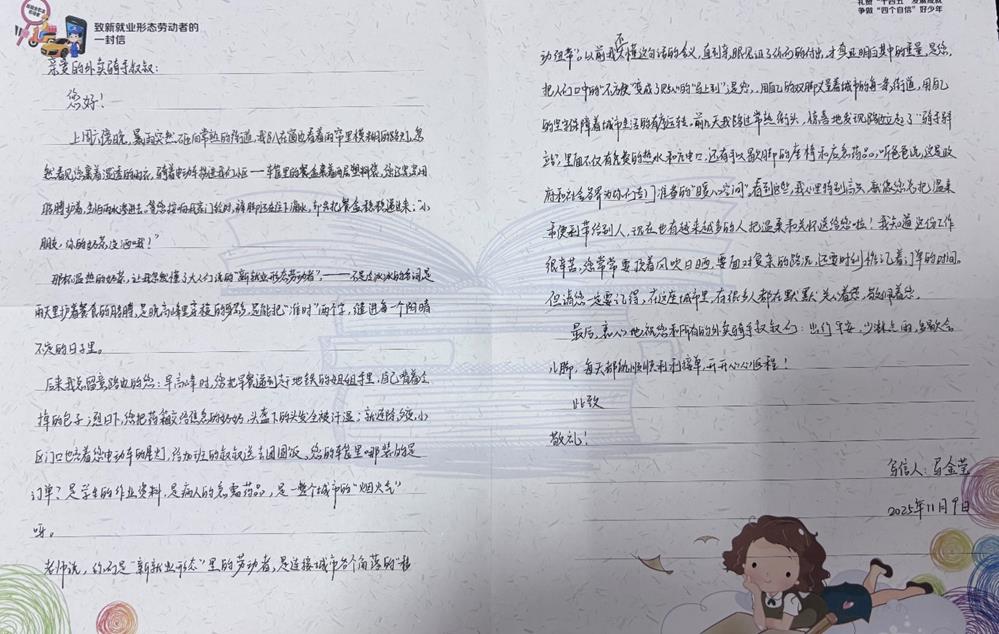 致新就业形态劳动者的
一封信
亲爱的外卖骑手叔叔：
您好！
上周六傍晚，暴雨突然砸向常熟的街道，我趴在窗边看着雨帘里模糊的路灯，忽
然看见您裹着湿透的雨衣，骑着电动车拐进我们小区——车筐里的餐盒裹着两层塑料袋，您还弓着
胳膊护着，生怕雨水渗进去。等您按响我家门铃时，裤脚还在往下滴水，却先把餐盒稳稳递过来：“小
朋友，你的奶茶没洒哦！”
那杯温热的奶茶，让我忽然懂了大人们说的“新就业形态劳动者”——不是冷冰冰的名词，是
雨天里护着餐食的胳膊，是晚高峰里穿梭的身影，是能把“准时”两个字，缝进每一个阴晴
不定的日子里。
后来我总留意路边的您：早高峰时，您把早餐递到赶地铁的姐姐手里，自己啃着
掉的包子；烈日下，您把药箱交给焦急的奶奶，头盔下的头发全被汗湿；就连除夕夜，小
区门口也亮着您电动车的尾灯，给加班的叔叔送去团圆饭。您的车筐里哪装的是
订单？是学生的作业资料，是病人的急需药品，是一整个城市的“烟火气”
呀。
老师说，你们是“新就业形态”里的劳动者，是连接城市各个角落的“移
礼赞“十四五”发展成就
争做“四个自信”好少年
动纽带”。以前我不懂这句话的含义，直到亲眼见证了你们的付出，才真正明白其中的重量。是您，
把人们口中的“不方便”变成了贴心的“马上到”；是您，用自己的双脚丈量着城市的每一条街道，用自己
的坚守保障着城市生活的有序运转。前几天我路过常熟街头，惊喜地发现路边立起了“骑手驿
站”，里面不仅有免费的热水和充电口，还有可以歇脚的座椅和应急药品。听爸爸说，这是政
府和社会各界为你们专门准备的“暖心空间”。看到这些，我心里特别高兴，就像您总把温柔
和便利带给别人，现在也有越来越多的人把温柔和关怀送给您啦！我知道这份工作
很辛苦，您常常要顶着风吹日晒，要面对复杂的路况，还要时刻惦记着订单的时间。
但请您一定要记得，在这座城市里，有很多人都在默默关心着您，敬佩着您。
最后，衷心地祝您和所有的外卖骑手叔叔们：出门平安，少淋点雨，多歇会
儿脚，每天都能顺顺利利接单，开开心心返程！
此致
敬礼！
写信人：马金莹
2025年11月9日